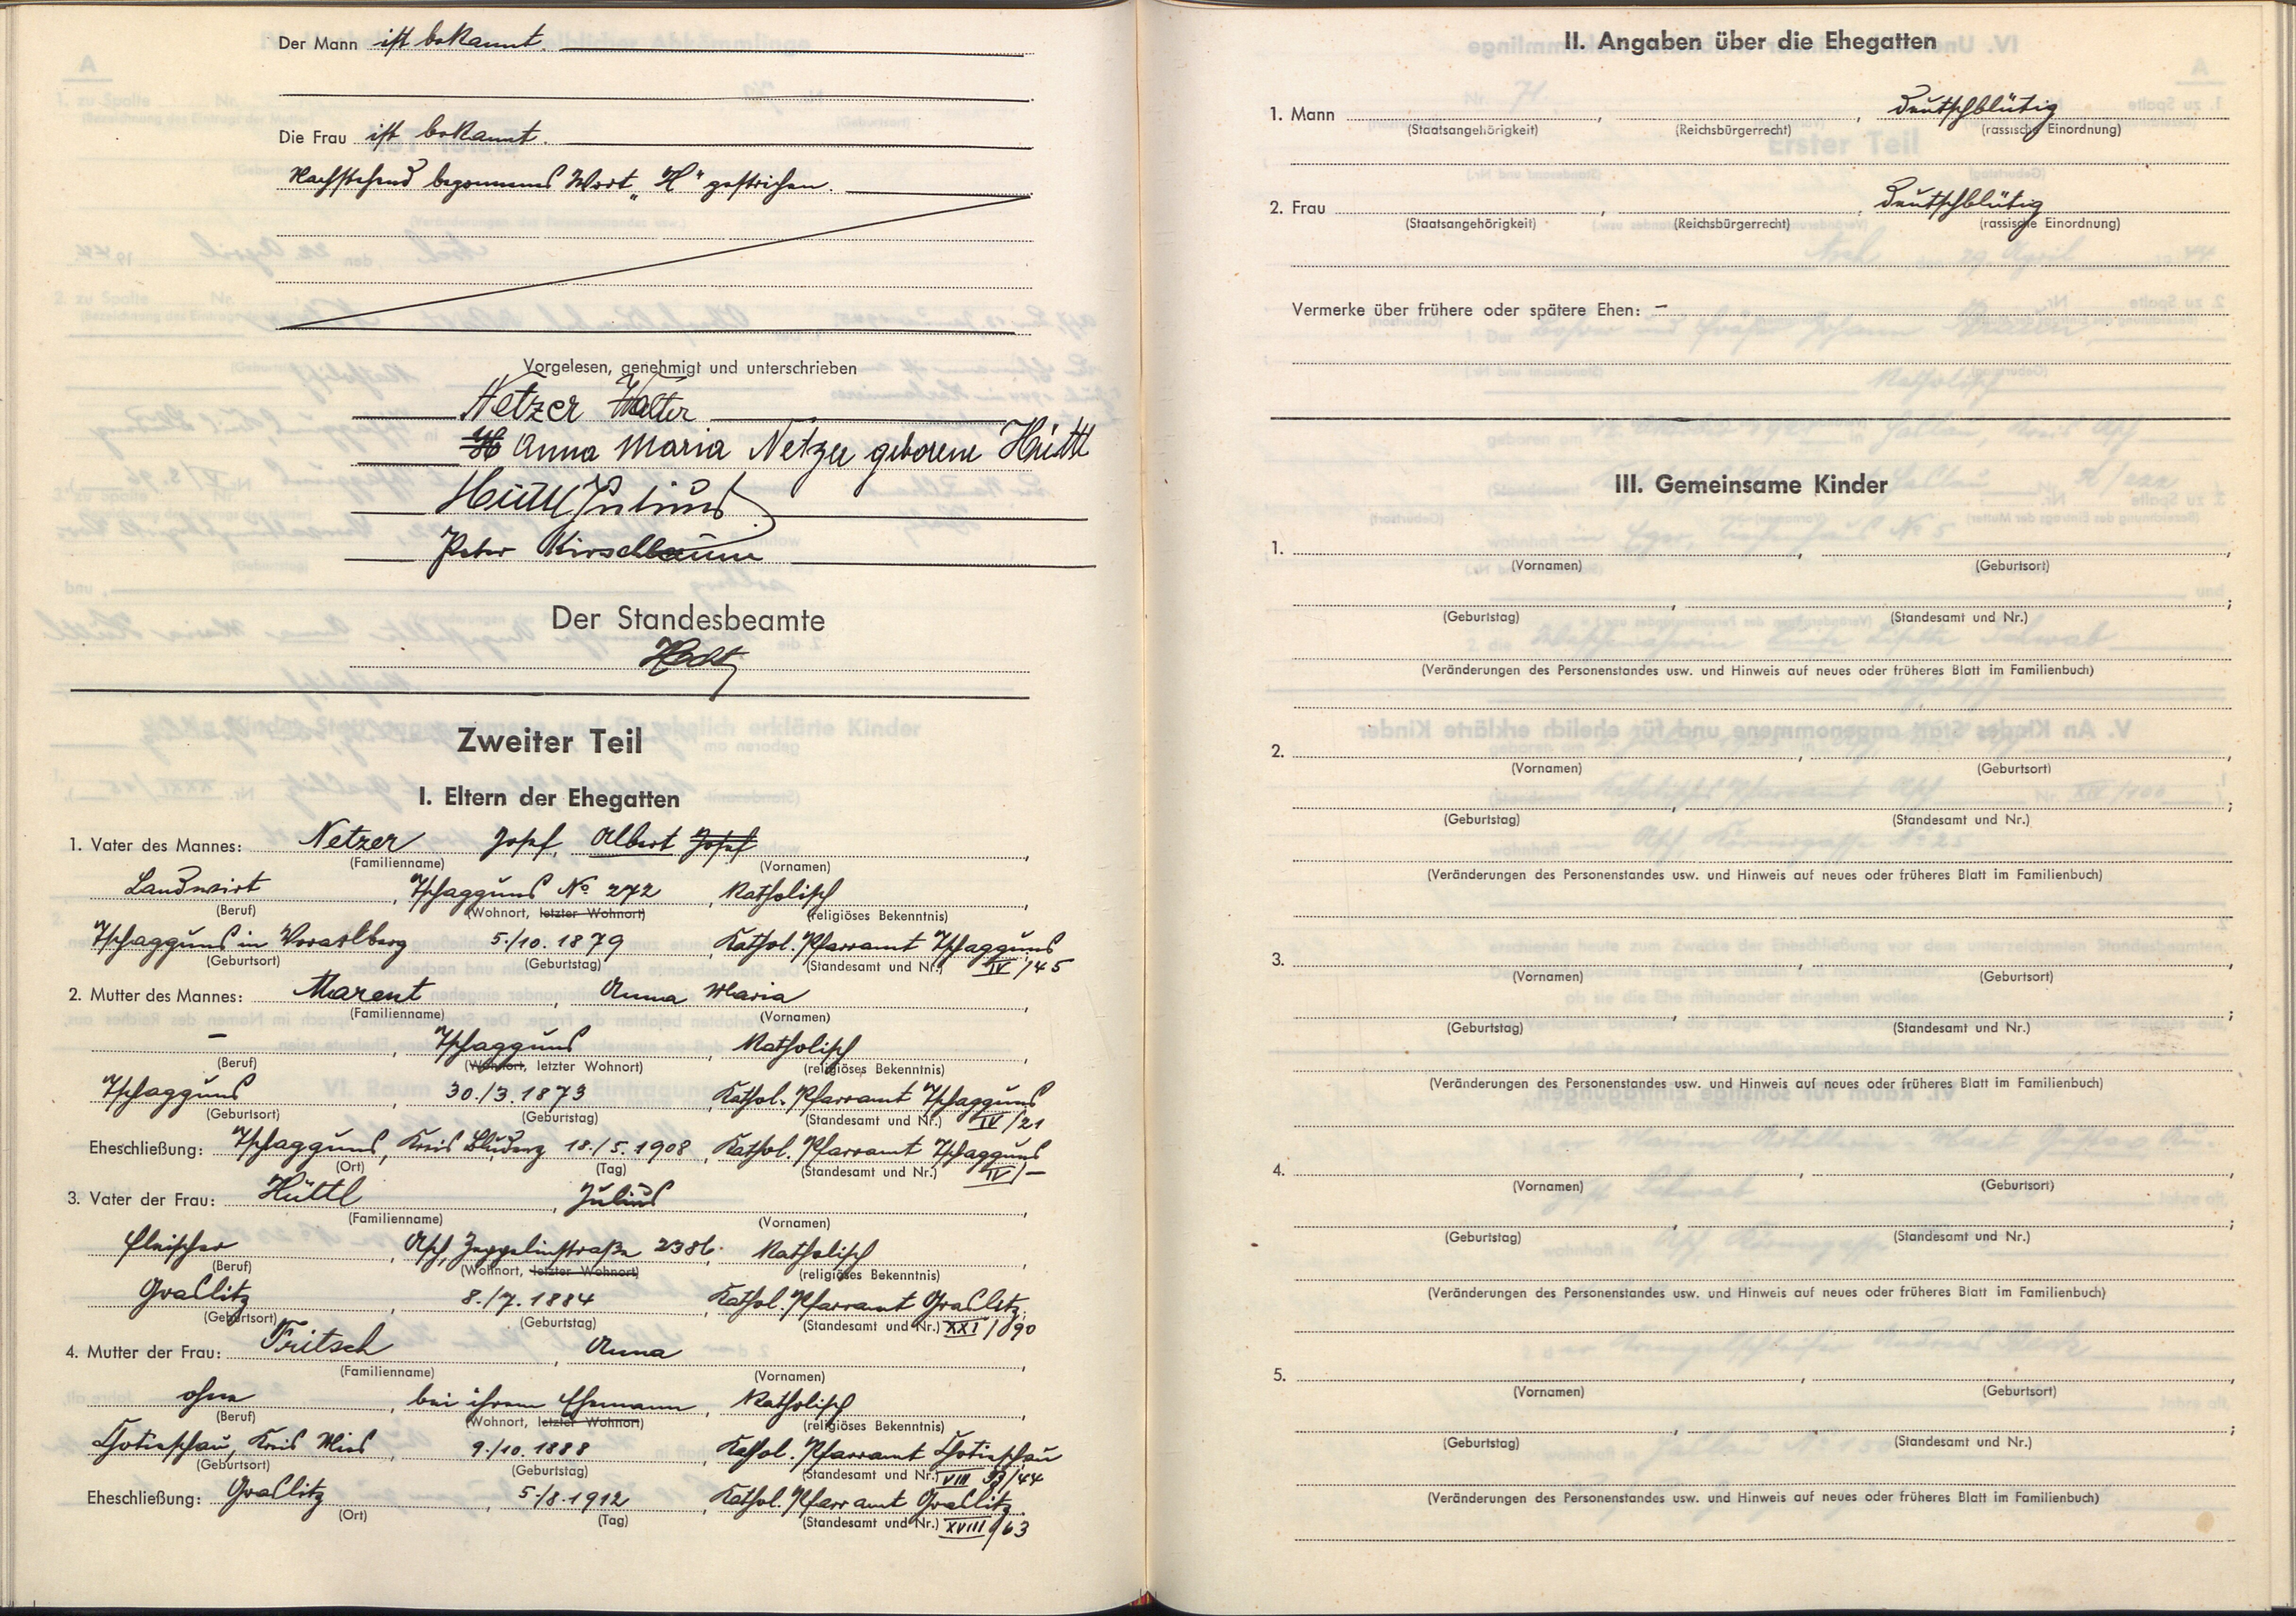 Der Mann ist bekannt.
Die Frau ist bekannt.
Nachstehend begonnenes Wort „H" gestrichen.
Vorgelesen, genehmigt und unterschrieben
Netzer Walter
H Anna Maria Netzer geborene Hüttl
Hüttl Julius
Peter Kirschbaum
Der Standesbeamte
Zweiter Teil
I. Eltern der Ehegatten
1. Vater des Mannes: Netzer Josef, Albert Josef
(Familienname) (Vornamen)
Landwirt, Tschagguns No 272, Katholisch,
(Beruf) (Wohnort, letzter Wohnort) (religiöses Bekenntnis)
Tschagguns in Vorarlberg 5./10. 1879, Kathol. Pfarramt Tschagguns
(Geburtsort) (Geburtstag) (Standesamt und Nr.) IV/45
2. Mutter des Mannes: Marent, Anna Maria,
(Familienname) (Vornamen)
–, Tschagguns, Katholisch,
(Beruf) (Wohnort, letzter Wohnort) (religiöses Bekenntnis)
Tschagguns, 30./3. 1873, Kathol. Pfarramt Tschagguns
(Geburtsort) (Geburtstag) (Standesamt und Nr.) IV/21
Eheschließung: Tschagguns, Kreis Bludenz 18./5. 1908, Kathol. Pfarramt Tschagguns
(Ort) (Tag) (Standesamt und Nr.) IV/–
3. Vater der Frau: Hüttl, Julius,
(Familienname) (Vornamen)
Fleischer, Asch, Zeppelinstraße 2386, Katholisch,
(Beruf) (Wohnort, letzter Wohnort) (religiöses Bekenntnis)
Graslitz, 8./7. 1884, Kathol. Pfarramt Graslitz,
(Geburtsort) (Geburtstag) (Standesamt und Nr.) XXI/890
4. Mutter der Frau: Fritsch, Anna,
(Familienname) (Vornamen)
ohne, bei ihrem Ehemann, Katholisch,
(Beruf) (Wohnort, letzter Wohnort) (religiöses Bekenntnis)
Chotieschau, Kreis Mies, 9./10. 1888, Kathol. Pfarramt Chotieschau
(Geburtsort) (Geburtstag) (Standesamt und Nr.) VIII B/44
Eheschließung: Graslitz, 5./8. 1912, Kathol. Pfarramt Graslitz
(Ort) (Tag) (Standesamt und Nr.) XVIII/63
II. Angaben über die Ehegatten
1. Mann, , deutschblütig
(Staatsangehörigkeit) (Reichsbürgerrecht) (rassische Einordnung)
2. Frau, , deutschblütig
(Staatsangehörigkeit) (Reichsbürgerrecht) (rassische Einordnung)
Vermerke über frühere oder spätere Ehen: –
III. Gemeinsame Kinder
1. , ,
(Vornamen) (Geburtsort)
, ;
(Geburtstag) (Standesamt und Nr.)
(Veränderungen des Personenstandes usw. und Hinweis auf neues oder früheres Blatt im Familienbuch)
2. , ,
(Vornamen) (Geburtsort)
, ;
(Geburtstag) (Standesamt und Nr.)
(Veränderungen des Personenstandes usw. und Hinweis auf neues oder früheres Blatt im Familienbuch)
3. , ,
(Vornamen) (Geburtsort)
, ;
(Geburtstag) (Standesamt und Nr.)
(Veränderungen des Personenstandes usw. und Hinweis auf neues oder früheres Blatt im Familienbuch)
4. , ,
(Vornamen) (Geburtsort)
, ;
(Geburtstag) (Standesamt und Nr.)
(Veränderungen des Personenstandes usw. und Hinweis auf neues oder früheres Blatt im Familienbuch)
5. , ,
(Vornamen) (Geburtsort)
, ;
(Geburtstag) (Standesamt und Nr.)
(Veränderungen des Personenstandes usw. und Hinweis auf neues oder früheres Blatt im Familienbuch)